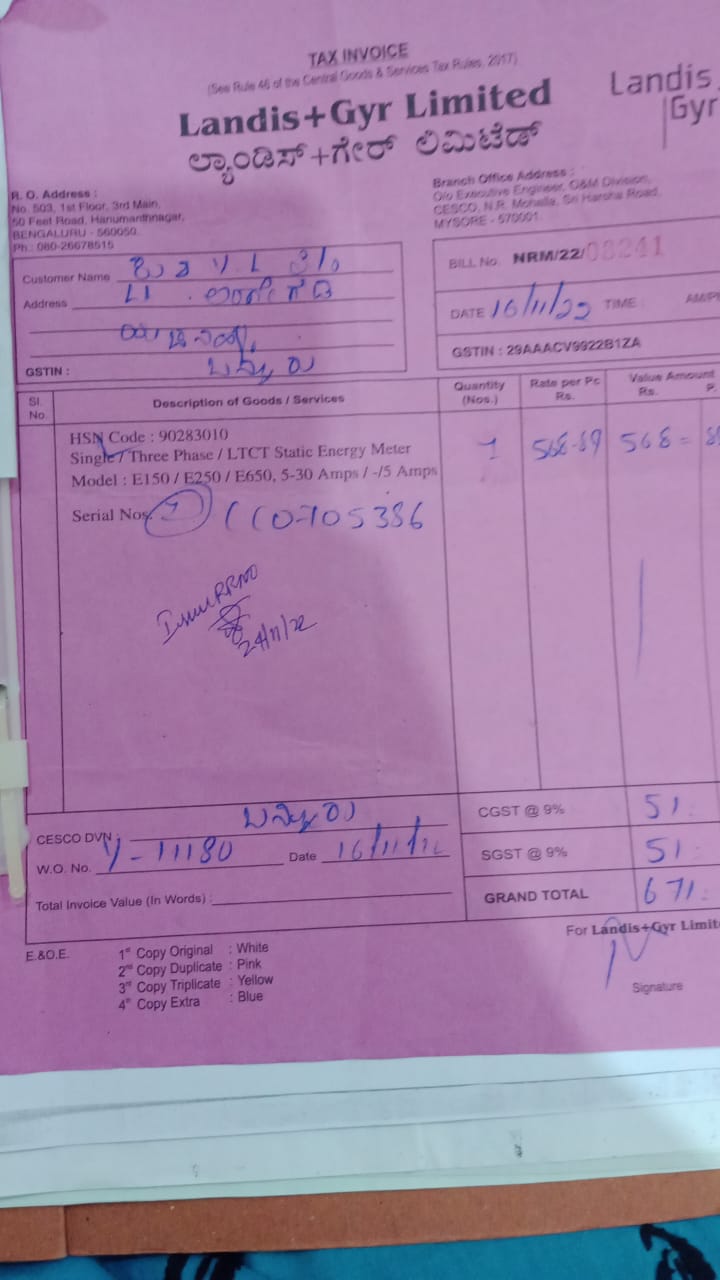 TAX INVOICE
(See Rule 46 of the Central Goods & Services Tax Rules, 2017)
Landis+Gyr Limited
ಲ್ಯಾಂಡಿಸ್+ಗೇರ್ ಲಿಮಿಟೆಡ್
Landis
Gyr
R. O. Address :
No. 503, 1st Floor, 3rd Main,
50 Feet Road, Hanumanthnagar,
BENGALURU - 560050.
Ph.: 080-26678515
Branch Office Address :
O/o Executive Engineer, O&M Division,
CESCO, N.R. Mohalla, Sri Harsha Road,
MYSORE - 570001.
Customer Name
Address
GSTIN : ಬನ್ನೂರು
BILL No. NRM/22/08241
DATE 16/11/22 TIME : AM/P
GSTIN : 29AAACV9922B1ZA
Sl. No. Description of Goods / Services Quantity (Nos.) Rate per Pc Rs. Value Amount Rs. P.
HSN Code : 90283010
Single / Three Phase / LTCT Static Energy Meter 1 568-89 568 =
Model : E150 / E250 / E650, 5-30 Amps / -/5 Amps
Serial Nos. 1
24/11/22
CESCO DVN : ಬನ್ನೂರು
W.O. No. Y-11180 Date 16/11/22
Total Invoice Value (In Words) :
CGST @ 9% 51
SGST @ 9% 51
GRAND TOTAL 671
E.&O.E.
1st Copy Original : White
2nd Copy Duplicate : Pink
3rd Copy Triplicate : Yellow
4th Copy Extra : Blue
For Landis+Gyr Limite
Signature